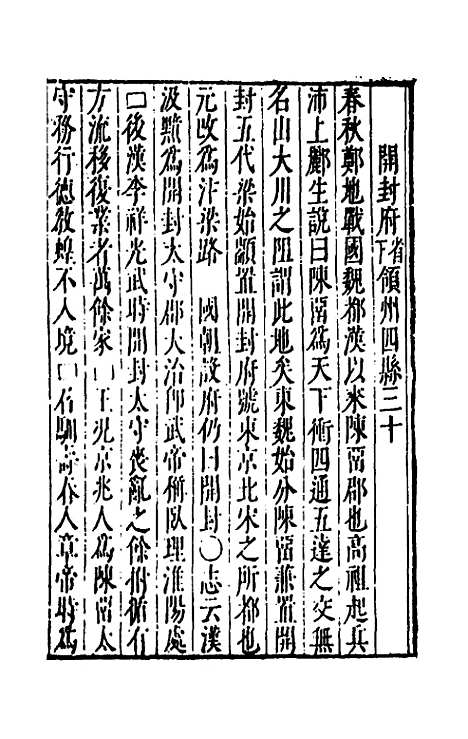 開封府省下領州四縣三十
春秋鄭地戰國魏都漢以來陳留郡也高祖起兵
沛上酈生說曰陳留爲天下衝四通五達之交無
名山大川之阻謂此地矣東魏始分陳留兼置開
封五代梁始顓置開封府號東京北宋之所都也
元改爲汴梁路　國朝設府仍曰開封〇志云漢
汲黯爲開封太守郡大治仰武帝衡臥理淮陽處
口後漢李祥光武時開封太守喪亂之餘拊循有
方流移復業者萬餘家口王況京兆人爲陳留太
守務行德敎蝗不入境口石馴壽春人章帝時爲